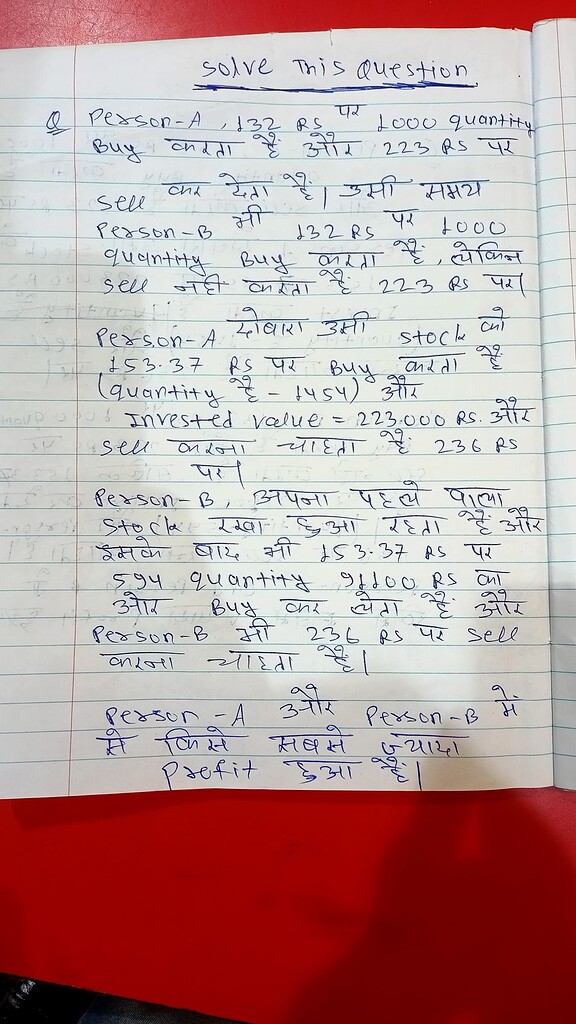 Solve This Question
Q Person-A, 132 RS पर 1000 quantity
Buy करता है और 223 RS पर
sell कर देता है। उसी समय
Person-B भी 132 RS पर 1000
quantity Buy करता है, लेकिन
sell नही करता है 223 RS पर।
Person-A दोबारा उसी stock को
153.37 RS पर Buy करता है
(quantity है - 1454) और
Invested value = 223.000 RS. और
sell करना चाहता है 236 RS
पर।
Person-B, अपना पहले वाला
stock रखा हुआ रहता है और
इसके बाद भी 153.37 RS पर
594 quantity 91100 RS का
और Buy कर लेता है और
Person-B भी 236 RS पर sell
करना चाहता है।
Person-A और Person-B में
से किसे सबसे ज्यादा
Prefit हुआ है।